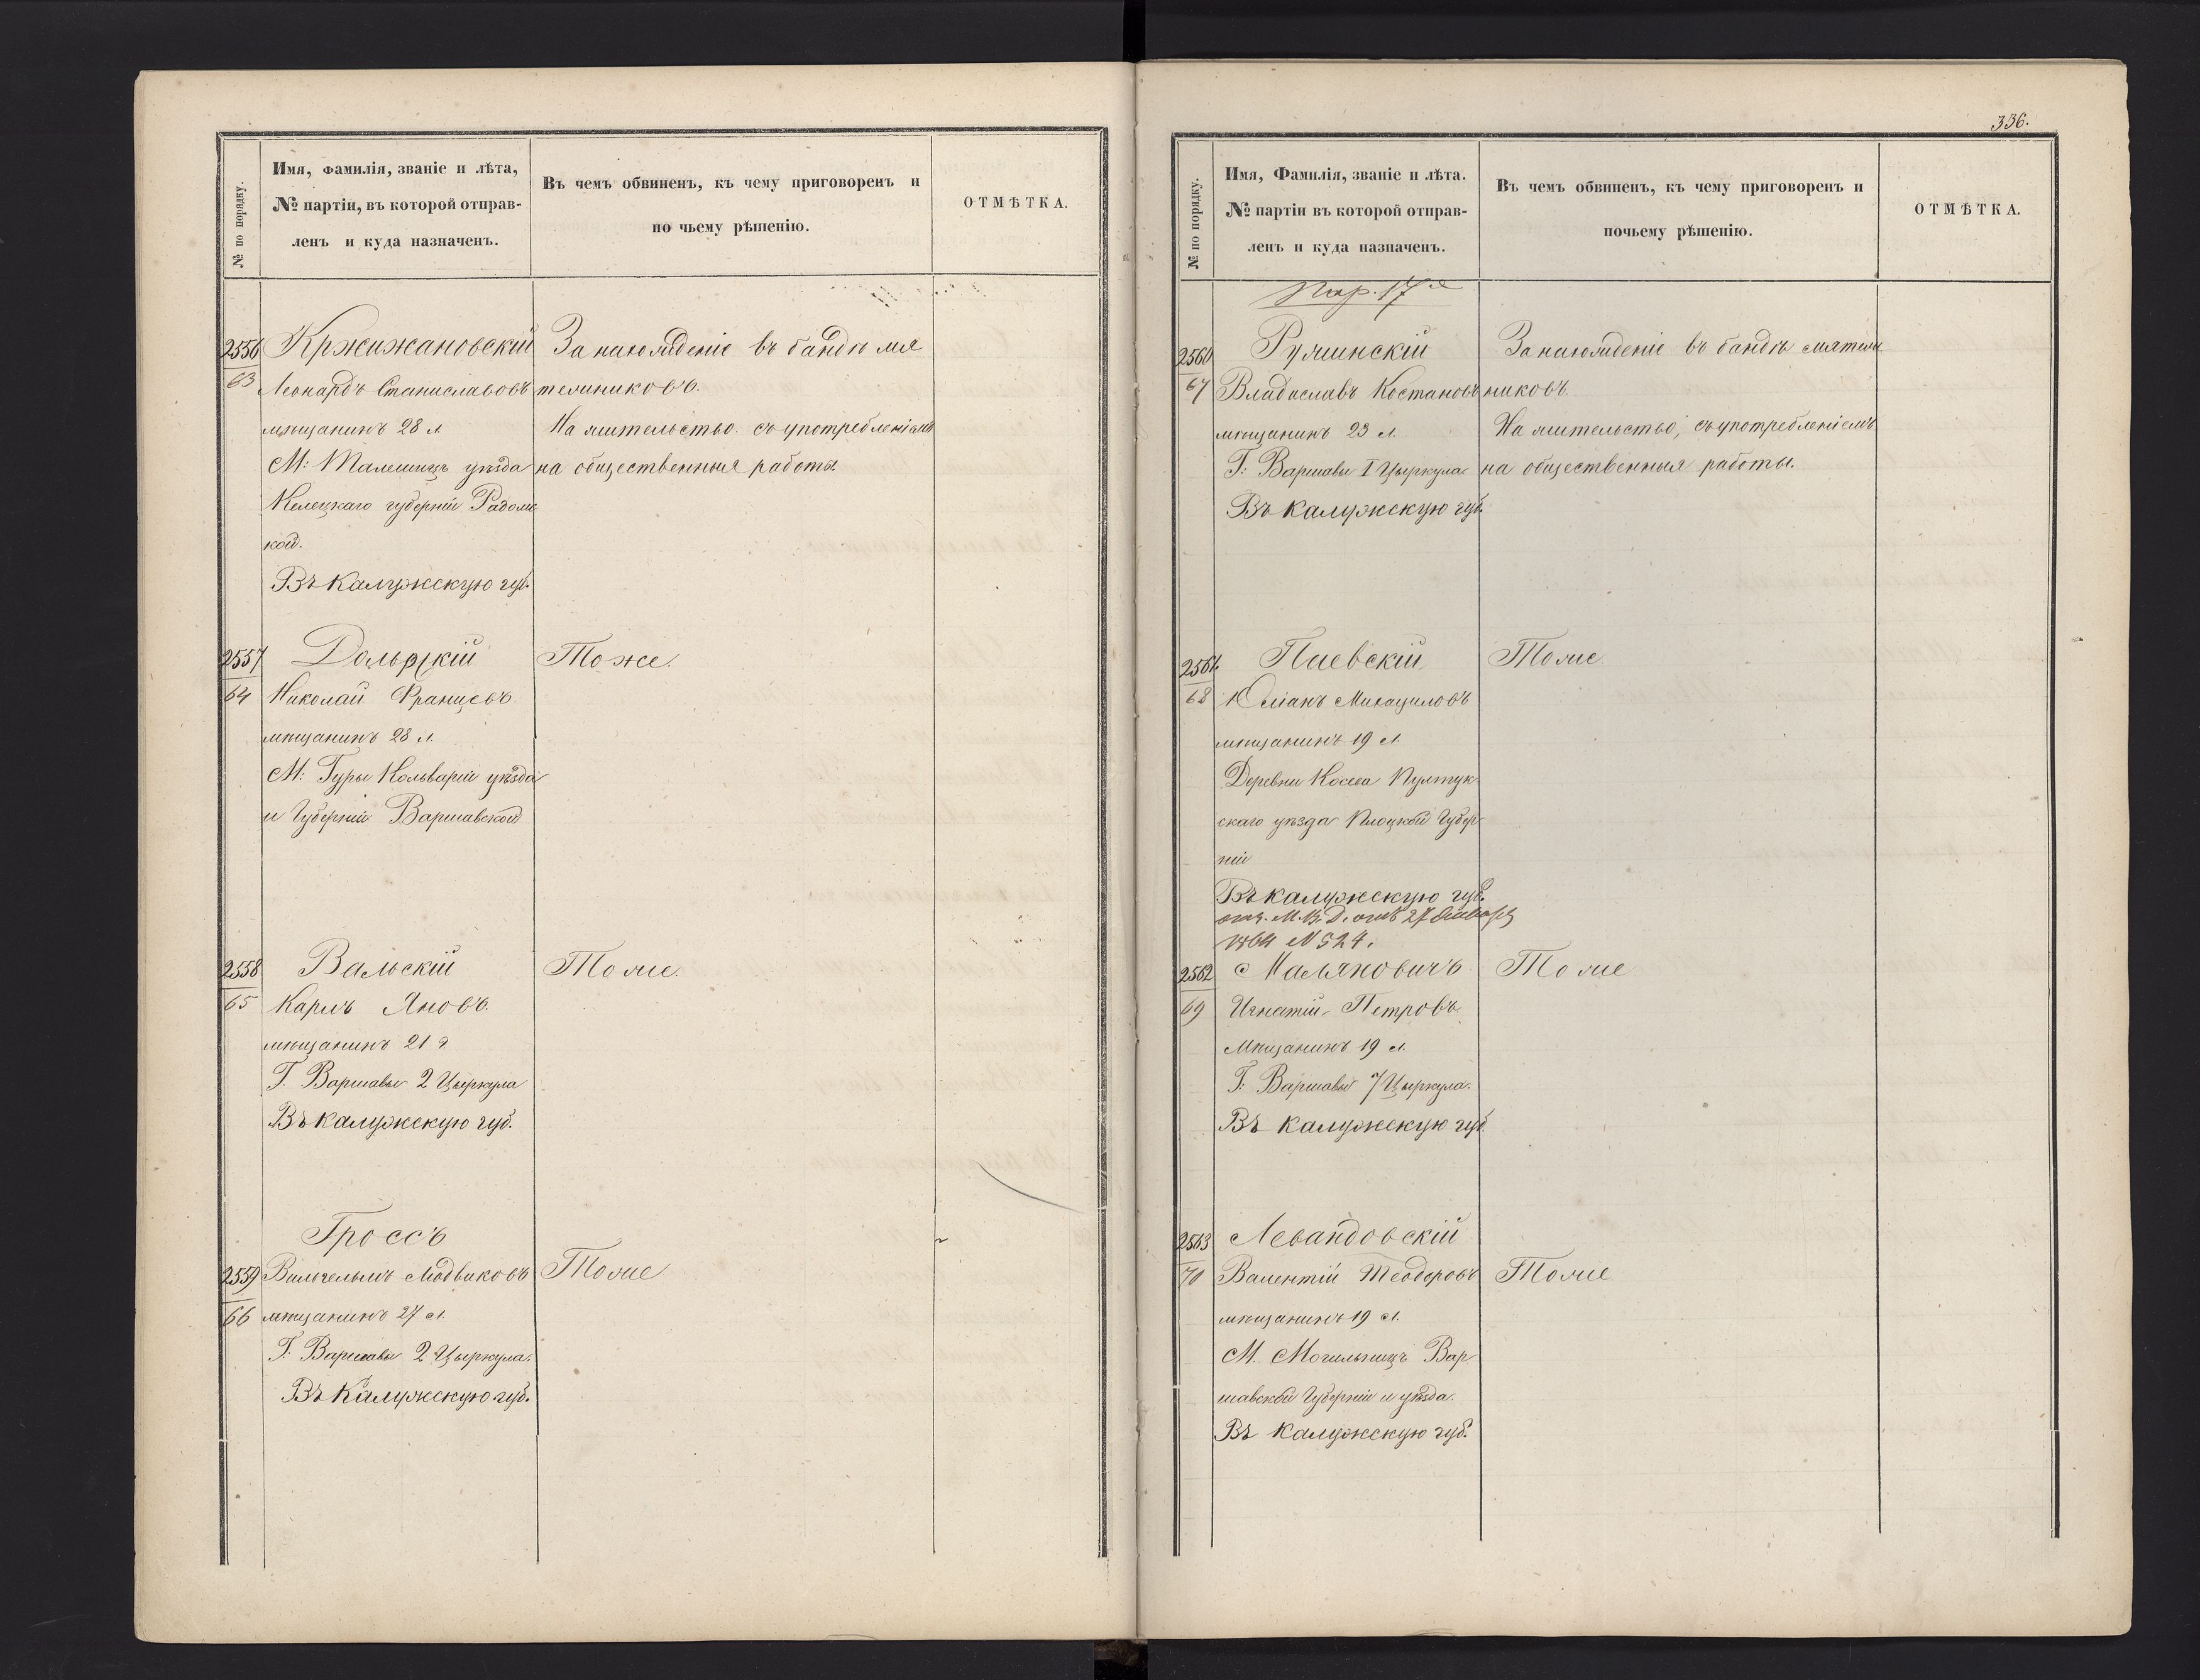 № по порядку.
Имя, Фамилія, званіе и лѣта,
№ партіи, въ которой отправ-
ленъ и куда назначенъ.
Въ чемъ обвиненъ, къ чему приговоренъ и
по чьему рѣшенію.
ОТМѢТКА.
2556
63
Кржижановскій
Леонардъ Станиславовъ
мѣщанинъ 28 л.
М: Малешицъ уѣзда
Келецкаго губерніи Радомс
кой.
Въ Калужскую губ.
За нахожденіе въ бандѣ мя
тежниковъ.
На жительство съ употребленіемъ
на общественныя работы
2557
64
Николай Францевъ
мѣщанинъ 28 л.
М: Гуры Кольваріи уѣзда
и Губерніи Варшавской
Тоже.
2558
65
Вальскій
Карлъ Яновъ.
мѣщанинъ 21 г.
Г. Варшавы 2 Цыркула
Въ Калужскую губ.
Тоже.
Гроссъ
2559
66
Вильгельмъ Людвиковъ
мѣщанинъ 27 л.
Г: Варшавы 2 Цыркула.
Въ Калужскую губ.
Тоже
336.
№ по порядку.
Имя, Фамилія, званіе и лѣта.
№ партіи въ которой отправ-
ленъ и куда назначенъ.
Въ чемъ обвиненъ, къ чему приговоренъ и
почьему рѣшенію.
ОТМѢТКА.
Пар. 17я
2560
67
Румшинскій
Владиславъ Костановъ
мѣщанинъ 23 л.
Г: Варшавы I Цыркула
Въ Калужскую губ.
За нахожденіе въ бандѣ мятеж
никовъ.
На жительство, съ употребленіемъ
на общественныя работы.
2561
68
Паевскій
Юліанъ Михаиловъ
мѣщанинъ 19 л.
Деревни Косева Пултук
скаго уѣзда Плоцкой Губер
ніи
Въ Калужскую губ.
отз. М. В. Д. отъ 27 Января
1864 N 524.
2562
69
Мальяновичъ
Игнатій Петровъ
Мѣщанинъ 19 л.
Г: Варшавы 7 Цыркула.
Въ Калужскую губ.
Тоже
2563
70
Левандовскій
Валентій Теодоровъ
мѣщанинъ 19 л.
М. Могильницъ Вар
шавской Губерніи и уѣзда.
Въ Калужскую губ.
Тоже